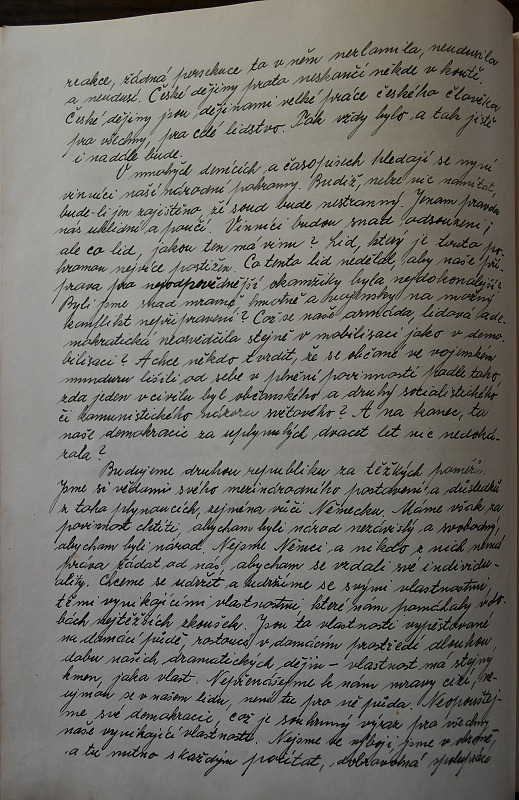 reakce, žádná persekuce to v něm nezlomila, neudusila
a neudusí. České dějiny proto neskončí někde v koutě.
České dějiny jsou dějinami velké práce českého člověka
pro všechny, pro celé lidstvo. Tak vždy bylo a tak jistě
i nadále bude.
V mnohých denících a časopisech hledají se nyní
viníci naší národní pohromy. Budiž, nelze nic namítat,
bude-li jen zajištěno, že soud bude nestranný. Jenom pravda
nás uklidní a poučí. Viníci budou snad odsouzeni,
ale co lid, jakou ten má vinu? Lid, který je touto po-
hromou nejvíce postižen. Co tento lid nedělal, aby naše pří-
prava pro nejodpovědnější okamžiky byla nejdokonalejší?
Byli jsme snad mravně, hmotně a vojensky na možný
konflikt nepřipraveni? Což se naše armáda, lidová a de-
mokratická neosvědčila stejně v mobilisaci jako v demo-
bilisaci? A chce někdo tvrdit, že se občané ve vojenském
munduru lišili od sebe v plnění povinností podle toho,
zda jeden v civilu byl občanského a druhý socialistického
či komunistického názoru světového? A na konec, to
naše demokracie za uplynulých dvacet let nic nedoká-
zala?
Budujeme druhou republiku za těžkých poměrů.
Jsme si vědomi svého mezinárodního postavení a důsledků
z toho plynoucích, zejména vůči Německu. Máme však za
povinnost chtíti, abychom byli národ nezávislý a svobodný,
abychom byli národ. Nejsme Němci a nikdo z nich nemá
práva žádat od nás, abychom se vzdali své individu-
ality. Chceme se udržet a udržíme se svými vlastnostmi,
těmi vynikajícími vlastnostmi, které nám pomáhaly v do-
bách nejtěžších zkoušek. Jsou to vlastnosti vypěstované
na domácí půdě, rostoucí v domácím prostředí dlouhou
dobu našich dramatických dějin – vlastnost má stejný
kmen, jako vlast. Nepřenášejme k nám mravy cizí, ne-
ujmou se v našem lidu, není tu pro ně půda. Neopouštěj-
me své demokracie, což je souhrnný výraz pro všechny
naše vynikající vlastnosti. Nejsme ve výboji, jsme v obraně,
a tu nutno s každým počítat, dobrovolná spolupráce